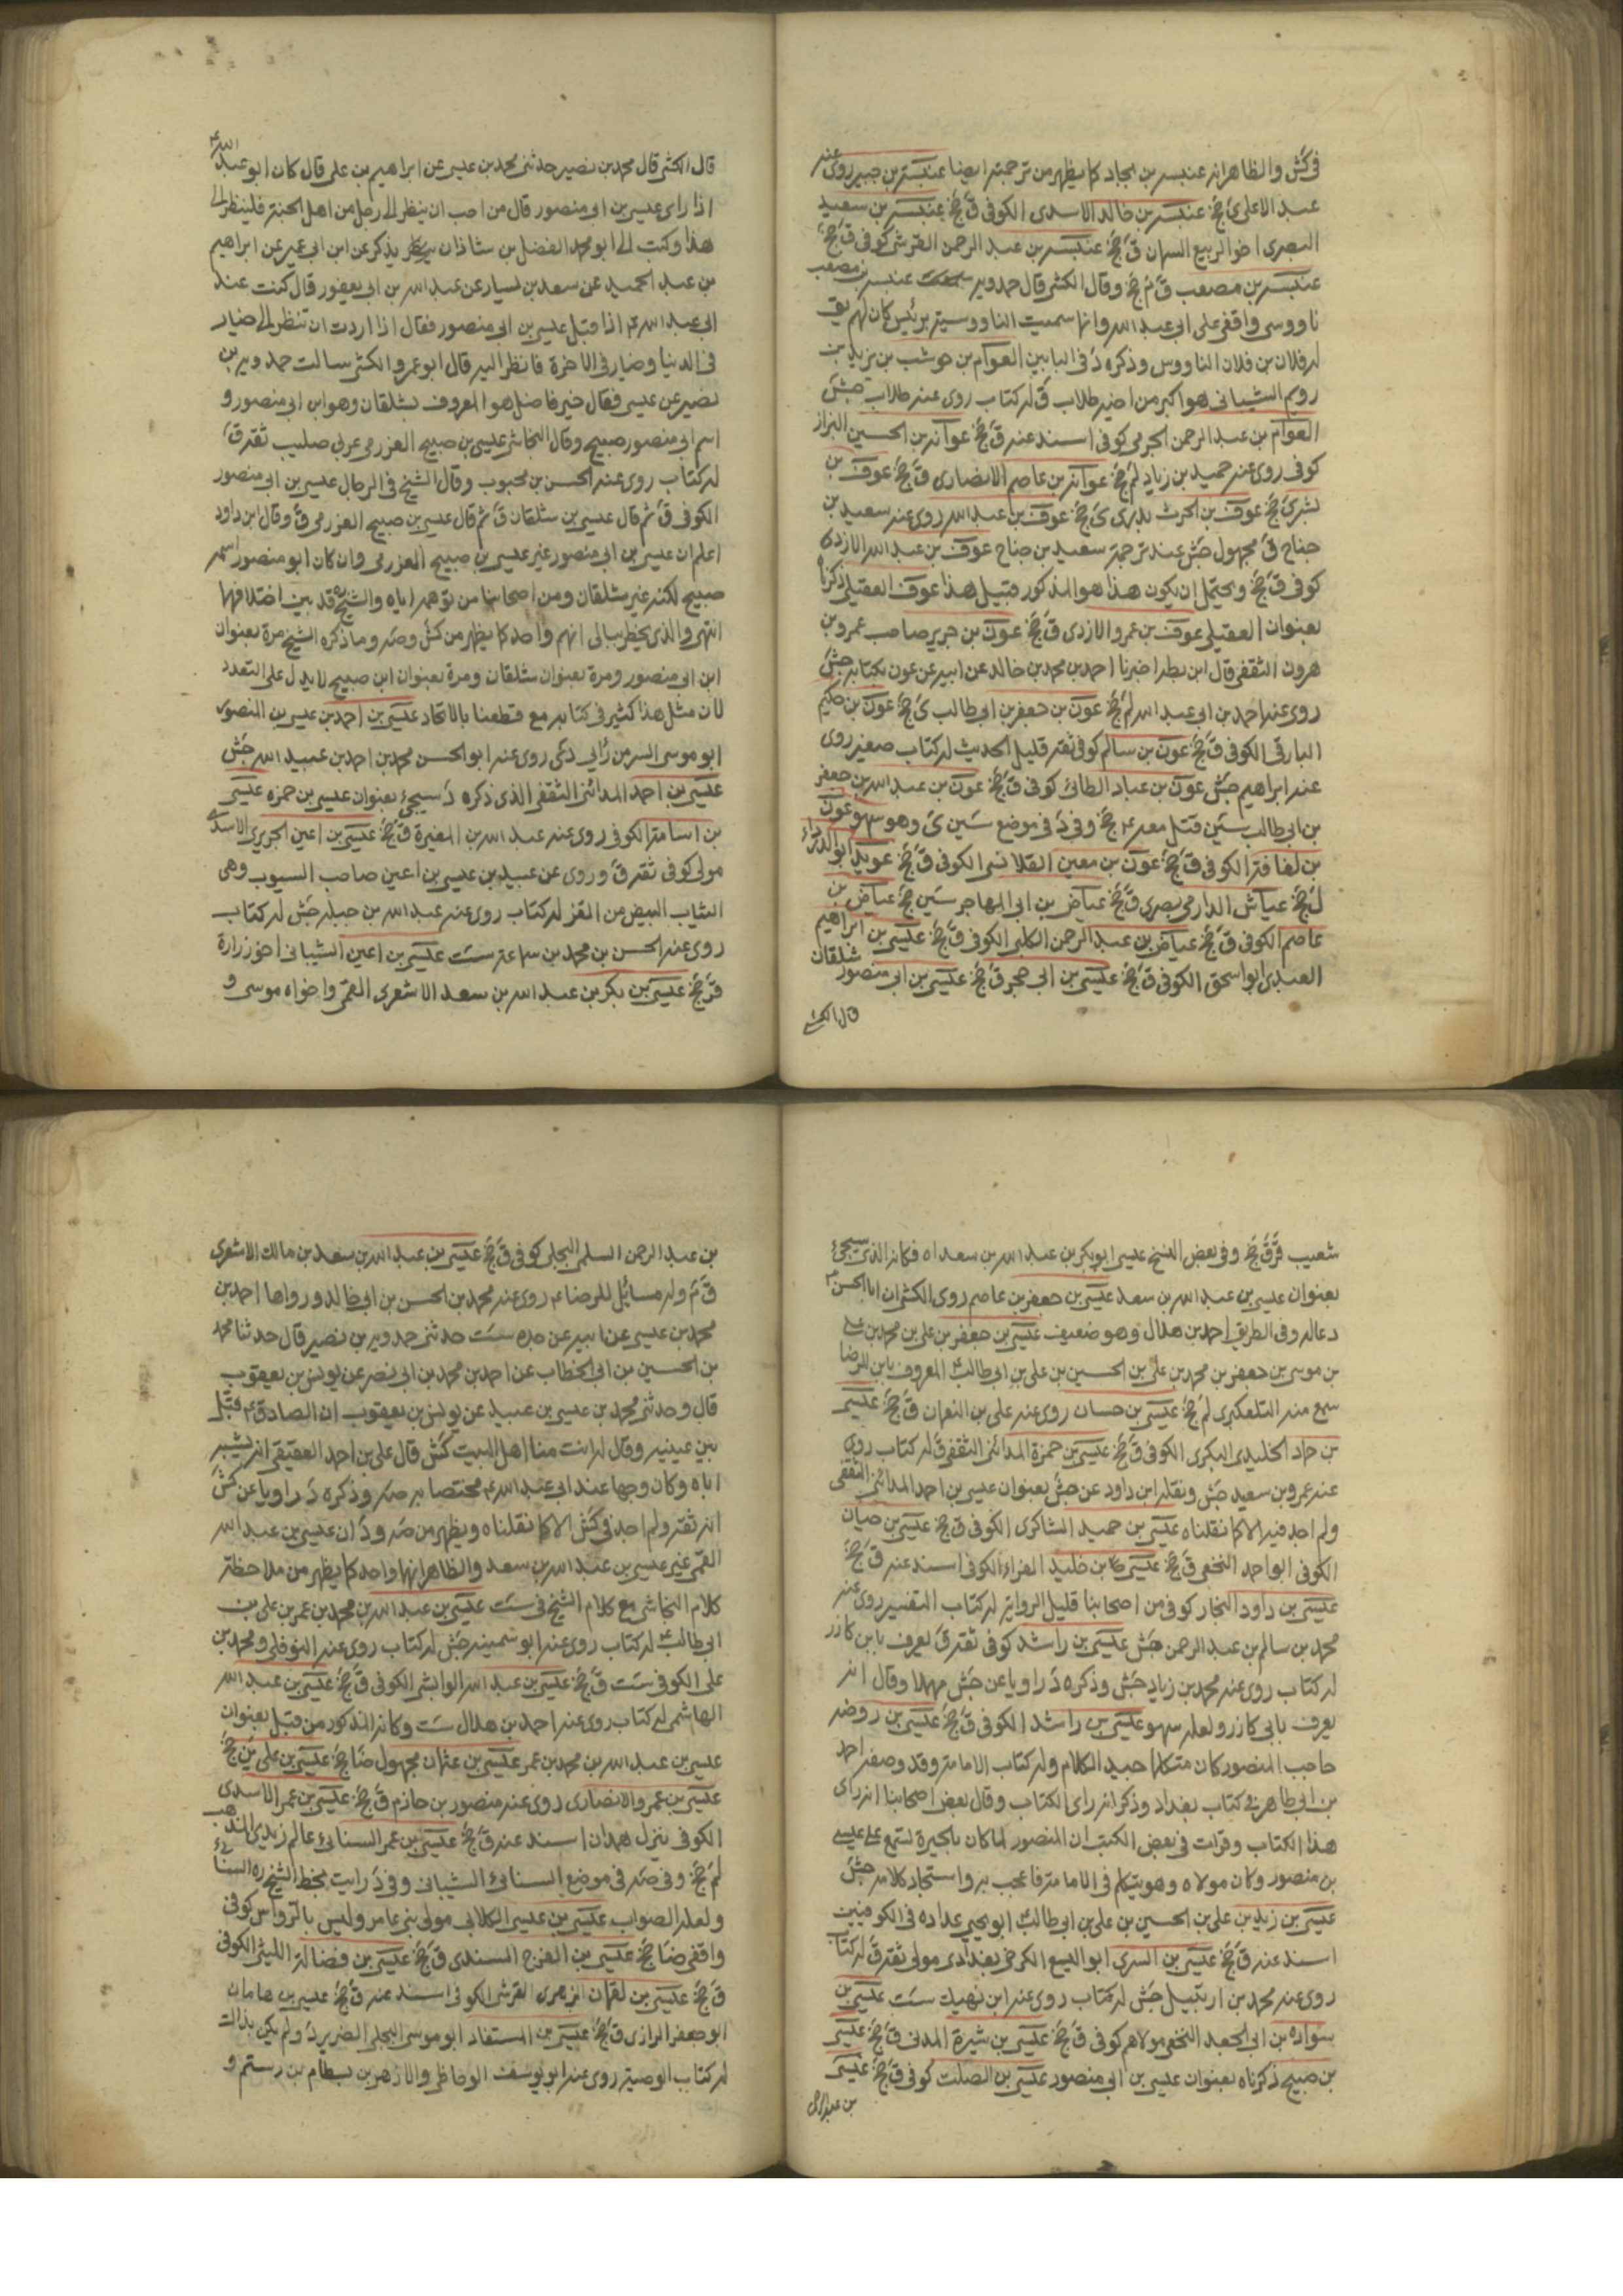 في كش والظاهر انه عنبسه بن بجاد كما يظهر من ترجمته ايضا عنبسة بن جبير روى عنه
عبد الاعلى ئ جخ عنبسة بن خالد الاسدي الكوفي ق جخ عنبسة بن سعيد
البصري اخو الربيع السمان ق جخ عنبسة بن عبد الرحمن القرشي كوفي ق جخ
عنبسة بن مصعب ق م جخ وقال الكشي قال حمدويه سمعت عنبسة بن مصعب
ناووسي واقفي على ابي عبد الله وانما سميت الناووسية برئيس كان لهم يق
له فلان بن فلان الناووس وذكره د في البابين العوام بن حوشب بن يزيد بن
رويم الشيباني هو اكبر من اخيه طلاب ق له كتاب روى عنه طلاب جش
العوام بن عبد الرحمن الجرمي كوفي اسند عنه ق جخ عوانة بن الحسين البزاز
كوفي روى عنه حميد بن زياد لم جخ عوانة بن عاصم الانصاري ق جخ عوف بن
بشر ئ جخ عوف بن الحرث بدري ى جخ عوف بن عبد الله روى عنه سعيد بن
جناح ق مجهول جش عند ترجمة سعيد بن جناح عوف بن عبد الله الازدي
كوفي ق جخ ويحتمل ان يكون هذا هو المذكور قبيل هذا عوف العقيلي ذكرناه
بعنوان العقيلي عوف بن عمرو الازدي ق جخ عون بن جرير صاحب عمرو بن
هرون الثقفي قال ابن بطه اخبرنا احمد بن محمد بن خالد عن ابيه عن عون بكتابه جش
روى عنه احمد بن ابي عبد الله لم جخ عون بن جعفر بن ابي طالب ى جخ عون بن حكيم
البارقي الكوفي ق جخ عون بن سالم كوفي ثقة قليل الحديث له كتاب صغير روى
عنه ابراهيم جش عون بن عباد الطائي كوفي ق جخ عون بن عبد الله بن جعفر
بن ابي طالب سين قتل معه ع جخ وفي د في موضع سين ى وهو سهو عون
بن لفافة الكوفي ق جخ عون بن معين القلانسي الكوفي ق جخ عويد ابو الدرداء
ل جخ عياش الدارمي بصري ق جخ عياض بن ابي المهاجر سين جخ عياض بن
عاصم الكوفي ق جخ عياض بن عبد الرحمن الكلبي الكوفي ق جخ عيسى بن ابراهيم
العبدي ابو اسحق الكوفي ق جخ عيسى بن ابي حجر ق جخ عيسى بن ابي منصور شلقان
قال الكشي
قال الكشي قال محمد بن نصير حدثني محمد بن عيسى عن ابراهيم بن علي قال كان ابو عبد الله ع
اذا راى عيسى بن ابي منصور قال من احب ان ينظر الى رجل من اهل الجنة فلينظر الى
هذا وكتب الي ابو محمد الفضل بن شاذان يذكر عن ابن ابي عمير عن ابراهيم
بن عبد الحميد عن سعد بن يسار عن عبد الله بن ابي يعفور قال كنت عند
ابي عبد الله ع اذا قبل عيسى بن ابي منصور فقال اذا اردت ان تنظر الى خيار
في الدنيا وخيار في الاخرة فانظر اليه قال ابو عمرو الكشي سالت حمدويه بن
نصير عن عيسى فقال خير فاضل هو المعروف بشلقان وهو ابن ابي منصور و
اسم ابي منصور صبيح وقال النجاشي عيسى بن صبيح العزرمي عربي صليب ثقة ق
له كتاب روى عنه الحسن بن محبوب وقال الشيخ في الرجال عيسى بن ابي منصور
الكوفي ق ثم قال عيسى بن شلقان ق ثم قال عيسى بن صبيح العزرمي ق وقال ابن داود
اعلم ان عيسى بن ابي منصور غير عيسى بن صبيح العزرمي وان كان ابو منصور اسمه
صبيح لكنه غير شلقان ومن اصحابنا من توهمه اياه والشيخ ره قد بين اختلافهما
انتهى والذي يخطر ببالي انهم واحد كما يظهر من كش وصه وما ذكره الشيخ مرة بعنوان
ابن ابي منصور ومرة بعنوان شلقان ومرة بعنوان ابن صبيح لا يدل على التعدد
لان مثل هذا كثير في كتابه مع قطعنا بالاتحاد عيسى بن احمد بن عيسى بن المنصور
ابو موسى السر من رأيي دى كى روى عنه ابو الحسن محمد بن احمد بن عبيد الله جش
عيسى بن احمد المدائني الثقفي الذي ذكره د سيجئ بعنوان عيسى بن حمزه عيسى
بن اسامة الكوفي روى عنه عبد الله بن المغيرة ق جخ عيسى بن اعين الجريري الاسدي
مولى كوفي ثقة ق وروى عن عبيد بن عيسى بن اعين صاحب السيوب وهي
الثياب البيض من القز له كتاب روى عنه عبد الله بن جبلة جش له كتاب
روى عنه الحسن بن محمد بن سماعة ست عيسى بن اعين الشيباني اخو زرارة
ق جخ عيسى بن بكر بن عبد الله بن سعد الاشعري القمي واخواه موسى و
شعيب ق ق جخ وفي بعض النسخ عيسى ابو بكر بن عبد الله بن سعد اه فكانه الذي سيجئ
بعنوان عيسى بن عبد الله بن سعد عيسى بن جعفر بن عاصم روى الكشي ان ابا الحسن ع
دعا له وفي الطريق احمد بن هلال وهو ضعيف عيسى بن جعفر بن علي بن محمد بن علي
بن موسى بن جعفر بن محمد بن علي بن الحسين بن علي بن ابي طالب ع المعروف بابن الرضا
سمع منه التلعكبري لم جخ عيسى بن حسان روى عنه علي بن النعمان ق جخ عيسى
بن حماد الخليدي البكري الكوفي ق جخ عيسى بن حمزة المدائني الثقفي ق له كتاب روى
عنه عمرو بن سعيد جش ونقله ابن داود عن جش بعنوان عيسى بن احمد المدائني الثقفي
ولم اجد فيه الا كما نقلناه عيسى بن حميد الشاكري الكوفي ق جخ عيسى بن حيان
الكوفي ابو احمد النخعي ق جخ عيسى بن خليد الفراء الكوفي اسند عنه ق جخ
عيسى بن داود النجار كوفي من اصحابنا قليل الرواية له كتاب التفسير روى عنه
محمد بن سالم بن عبد الرحمن جش عيسى بن راشد كوفي ثقة ق يعرف بابن كازر
له كتاب روى عنه محمد بن زياد جش وذكره د راويا عن جش مهملا وقال انه
يعرف بابي كازر ولعله سهو عيسى بن راشد الكوفي ق جخ عيسى بن روضه
حاجب المنصور كان متكلما جيد الكلام وله كتاب الامامة وقد وصفه احمد
بن ابي طاهر في كتاب بغداد وذكر انه راى الكتاب وقال بعض اصحابنا انه راى
هذا الكتاب وقرات في بعض الكتب ان المنصور لما كان بالحيرة تسمع على عيسى
بن منصور وكان مولاه وهو يتكلم في الامامة فاعجب به واستجاد كلامه جش
عيسى بن زيد بن علي بن الحسين بن علي بن ابي طالب ع ابو يحيى عداده في الكوفيين
اسند عنه ق جخ عيسى بن السري ابو اليسع الكرخي بغدادي مولى ثقة ق له كتاب
روى عنه محمد بن اربيل جش له كتاب روى عنه ابن نهيك ست عيسى بن
سواده بن ابي الجعد النخعي مولاهم كوفي ق جخ عيسى بن شيرة المدني ق جخ عيسى
بن صبيح ذكرناه بعنوان عيسى بن ابي منصور عيسى بن الصلت كوفي ق جخ عيسى
بن عبد الرحمن
بن عبد الرحمن السلمي البجلي كوفي ق جخ عيسى بن عبد الله بن سعد بن مالك الاشعري
ق م وله مسائل للرضا ع روى عنه محمد بن الحسن بن ابي خالد ورواها احمد بن
محمد بن عيسى عن ابيه عن جده ست حدثني حمدويه بن نصير قال حدثنا محمد
بن الحسين بن ابي الخطاب عن احمد بن محمد بن ابي نصر عن يونس بن يعقوب
قال وحدثني محمد بن عيسى بن عبيد عن يونس بن يعقوب ان الصادق ع قبل
بين عينيه وقال له انت منا اهل البيت كش قال علي بن احمد العقيقي انه يشبه
اباه وكان وجها عند ابي عبد الله ع مختصا به صه وذكره د راويا عن كش
انه ثقة ولم اجد في كش الا كما نقلناه ويظهر من صه ود ان عيسى بن عبد الله
القمي غير عيسى بن عبد الله بن سعد والظاهر انهما واحد كما يظهر من ملاحظة
كلام النجاشي مع كلام الشيخ في ست عيسى بن عبد الله بن محمد بن عمر بن علي بن
ابي طالب ع له كتاب روى عنه ابو سمينه جش له كتاب روى عنه النوفلي ومحمد بن
علي الكوفي ست ق جخ عيسى بن عبد الله الوابشي الكوفي ق جخ عيسى بن عبد الله
الهاشمي له كتاب روى عنه احمد بن هلال ست وكانه المذكور من قبل بعنوان
عيسى بن عبد الله بن محمد بن عمر عيسى بن عثمان مجهول ضا جخ عيسى بن علي ين جخ
عيسى بن عمرو الانصاري روى عنه منصور بن حازم ق جخ عيسى بن عمر الاسدي
الكوفي ينزل همدان اسند عنه ق جخ عيسى بن عمر السنائي عالم زيدي المذهب
لم جخ وفي صه في موضع السنائي الشيباني وفي د رايت بخط الشيخ ره السنائي
ولعله الصواب عيسى بن عيسى الكلابي مولى بني عامر وليس بالرواس كوفي
واقفي ضا جخ عيسى بن الفرج السندي ق جخ عيسى بن فضالة الليثي الكوفي
ق جخ عيسى بن لقمان الزهري القرشي الكوفي اسند عنه ق جخ عيسى بن هامان
ابو جعفر الرازي ق جخ عيسى بن المستفاد ابو موسى البجلي الضرير د ولم يكن بذاك
له كتاب الوصية روى عنه ابو يوسف الوحاظي والازهر بن بسطام بن رستم و